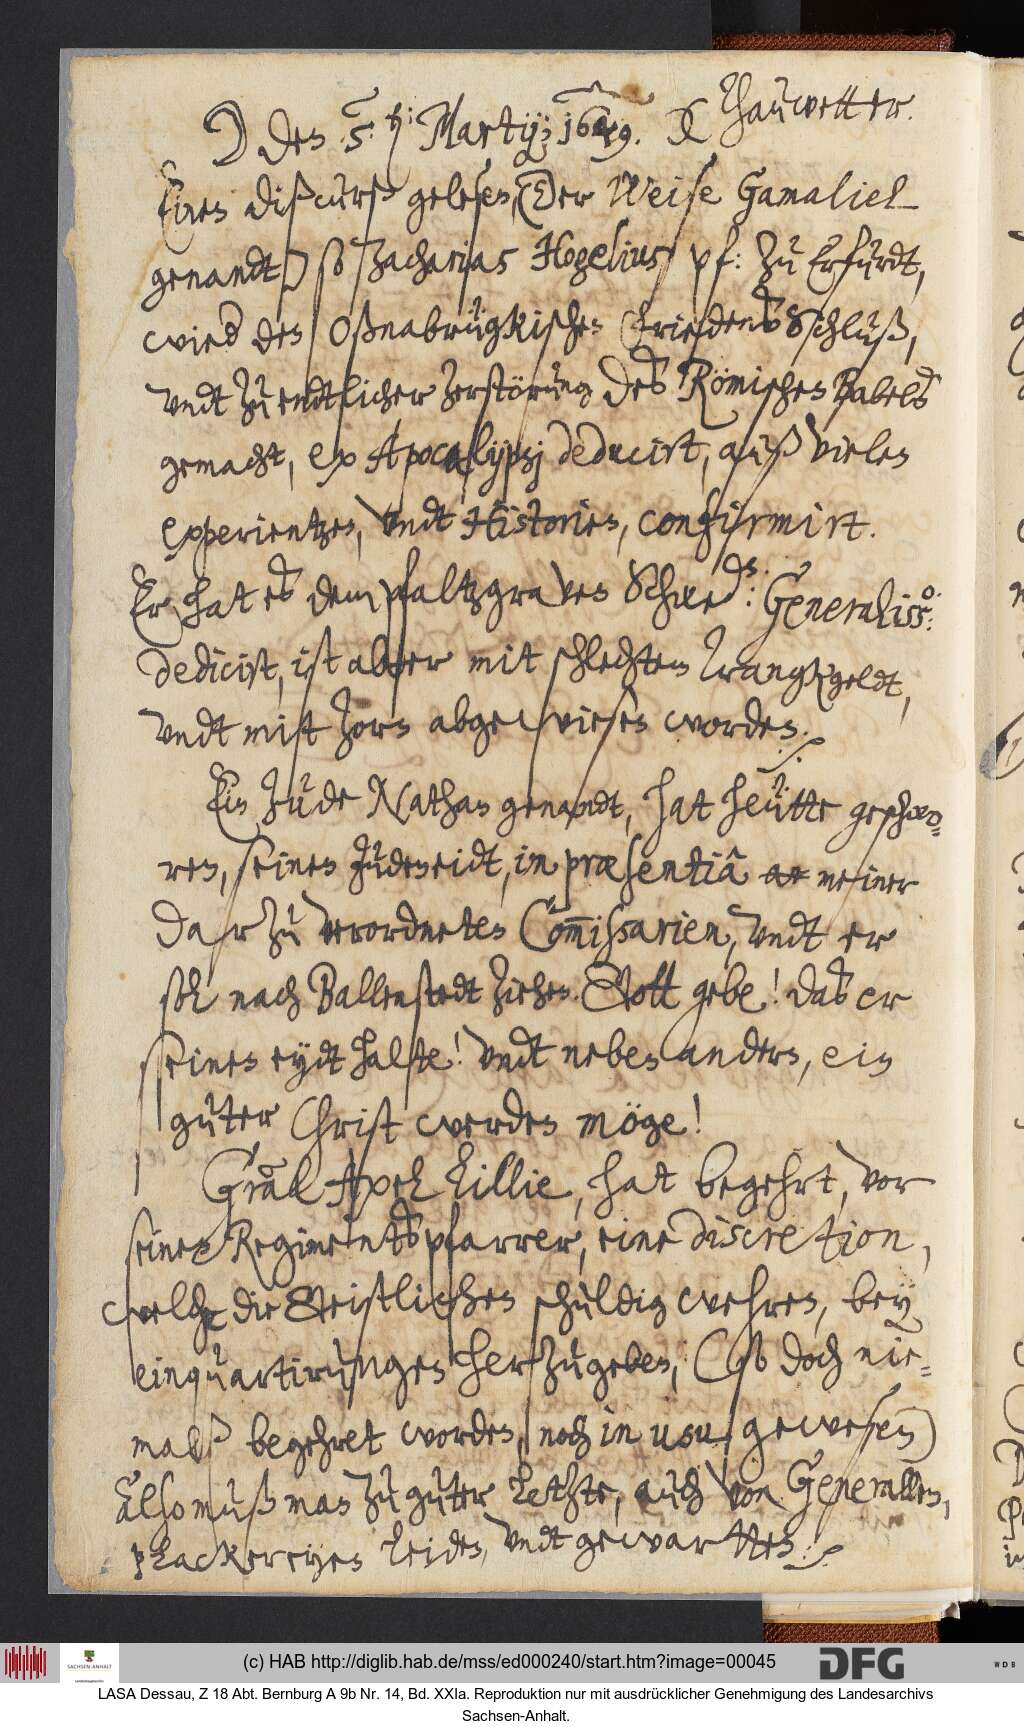 ☽ den 5. t: Martij; 1649. X Thauwetter.
Einen dißcurß gelesen, (Der Weise Gamaliel
genandt) so Zacharias Hogelius pf: zu Erfurdt,
wied den Oßnabrügkischen FriedensSchluß,
undt zu endtlicher zerstörung des Römischen Babels
gemacht, ex Apocalypsj deducirt, auß vielen
experientzen, undt Historien, confirmirt.
Er hat es dem pfaltzgraven Schwed: Generalisso:
dedicirt, ist aber mit schlechtem Trangkgeldt,
undt mitt zorn abgewiesen worden. /.
Ein Jude Nathan genandt, hat heütte geschwo-
ren, seinen Judeneidt, in præsentiâ meiner
darzu verordneten Com̅issarien, undt er
soll nach Ballenstedt ziehen. Gott gebe! das er
seinen eydt halte! undt neben andern, ein
guter Christ werden möge!
Graf Axel Lillie, hat begehrt, vor
seinen Regimentspfarrer, eine discretion,
welche die Geistlichen schuldig wehren, bey
einquartirungen herzugeben, (so doch nie-
malß begehret worden, noch in usu gewesen)
Also muß man zu guter Letzte, auch von Generallen,
plackereyen leiden, undt gewartten. /.
(c) HAB http://diglib.hab.de/mss/ed000240/start.htm?image=00045
SACHSEN-ANHALT
DFG
WDB
LASA Dessau, Z 18 Abt. Bernburg A 9b Nr. 14, Bd. XXIa. Reproduktion nur mit ausdrücklicher Genehmigung des Landesarchivs
Sachsen-Anhalt.